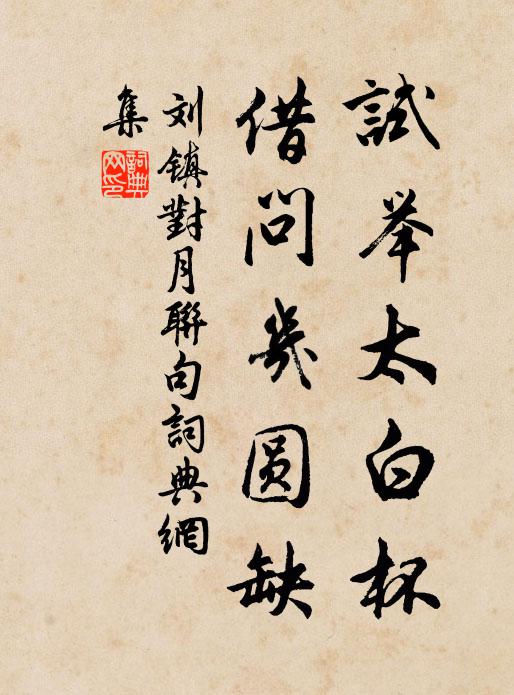 試举太白杯
借问几圆缺
刘镇對月聯句詞典網
集
詞典網印